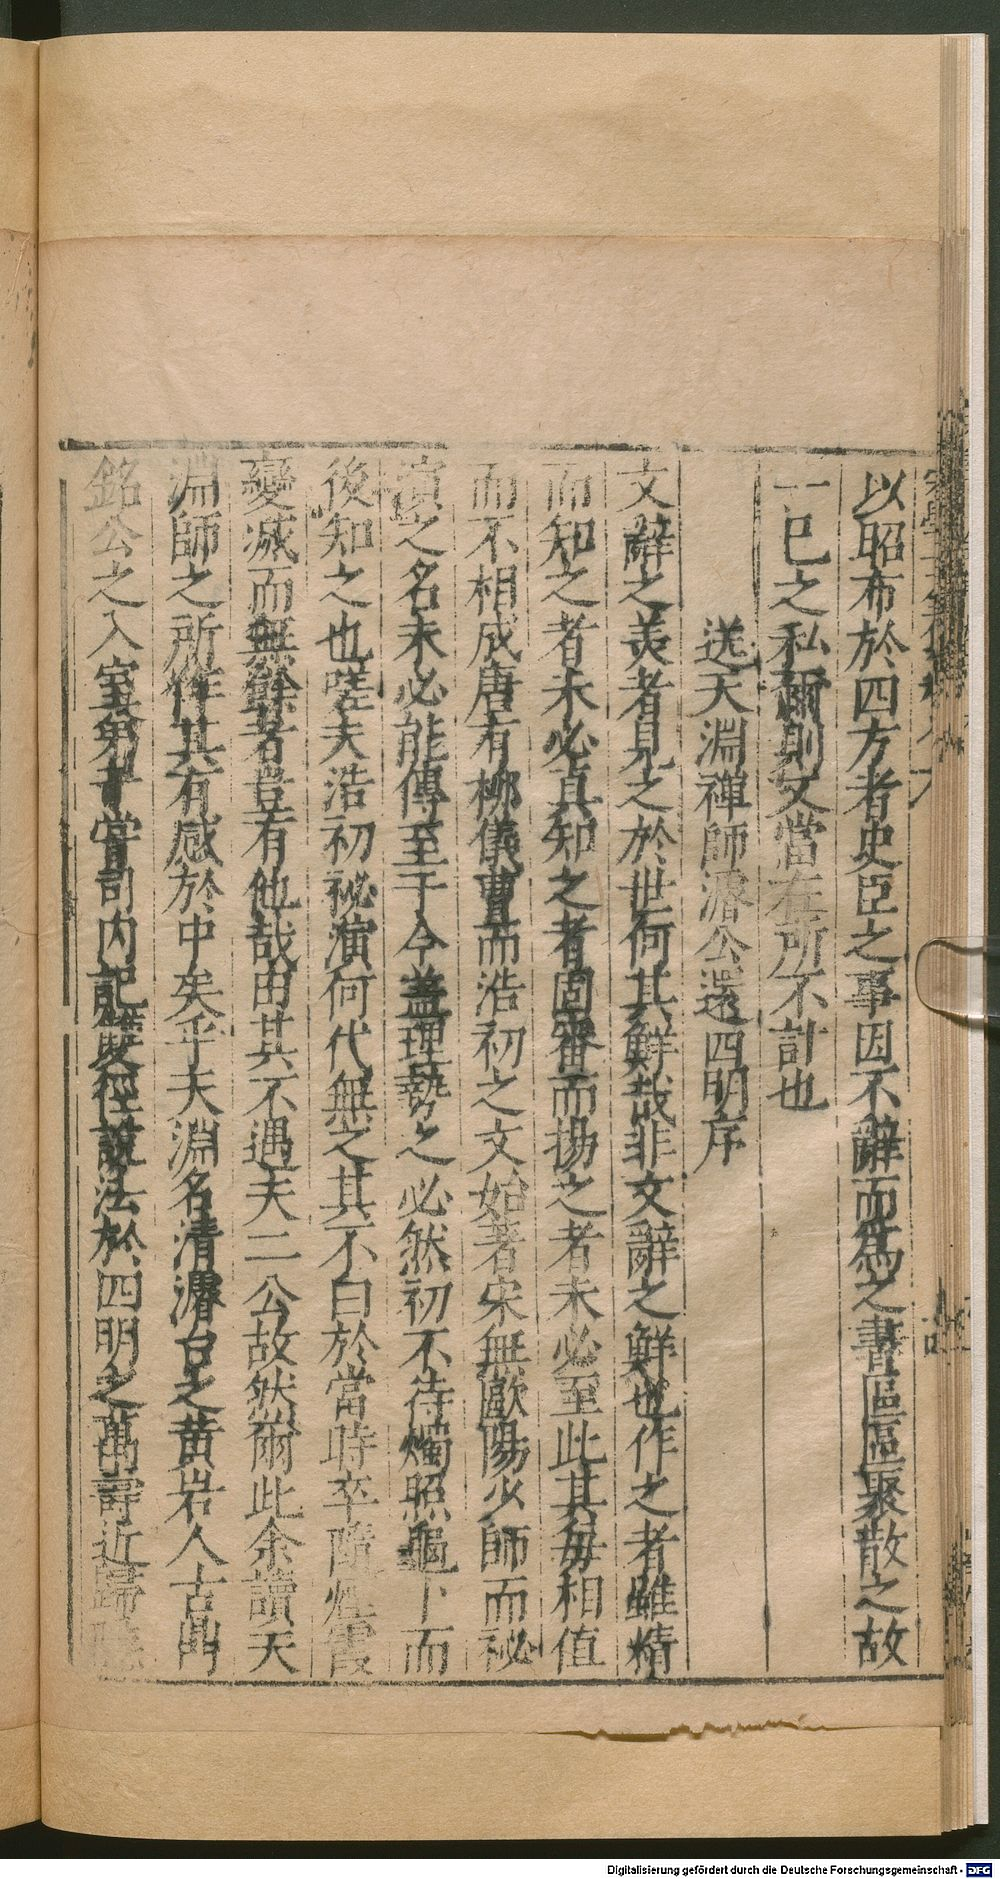 以昭布於四方者史臣之事因不辭而爲之書區區聚散之故
一己之私爾則又當在所不計也
送天淵禪師濬公還四明序
文辭之美者見之於世何其鮮哉非文辭之鮮也作之者雖精
而知之者未必真知之者固審而揚之者未必至此其每相值
而不相成唐有柳儀曹而浩初之文始著宋無歐陽少師而祕
演之名未必能傳至于今蓋理勢之必然初不待燭照龜卜而
後知之也嗟夫浩初祕演何代無之其不白於當時卒隨煙霞
變滅而無餘者豈有他哉由其不遇夫二公故然爾此余讀天
淵師之所作其有感於中矣乎天淵名清濬台之黃岩人古鼎
銘公之入室弟子嘗司內記雙徑說法於四明之萬壽近歸
Digitalisierung gefördert durch die Deutsche Forschungsgemeinschaft - DFG